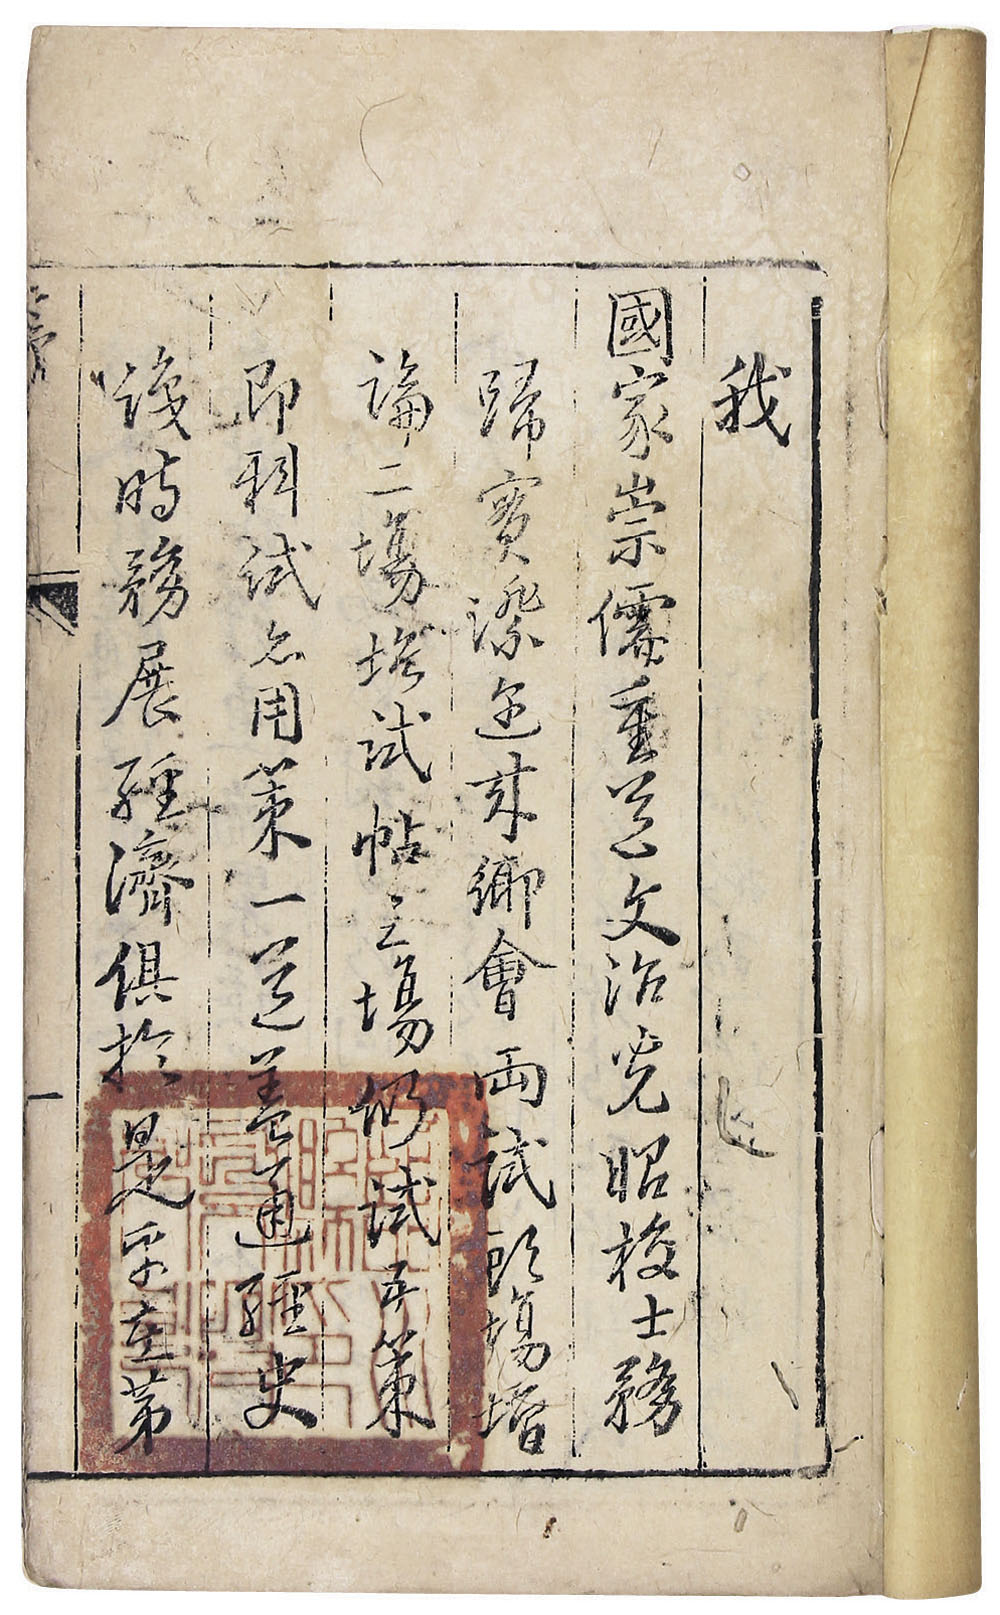 我
國家崇儒重道文治光昭校士務
歸實濟近來鄉會兩試頭場增
論二場增試帖三場仍試五策
即科試亦用策一道蓋通經史
識時務展經濟俱於是乎在第